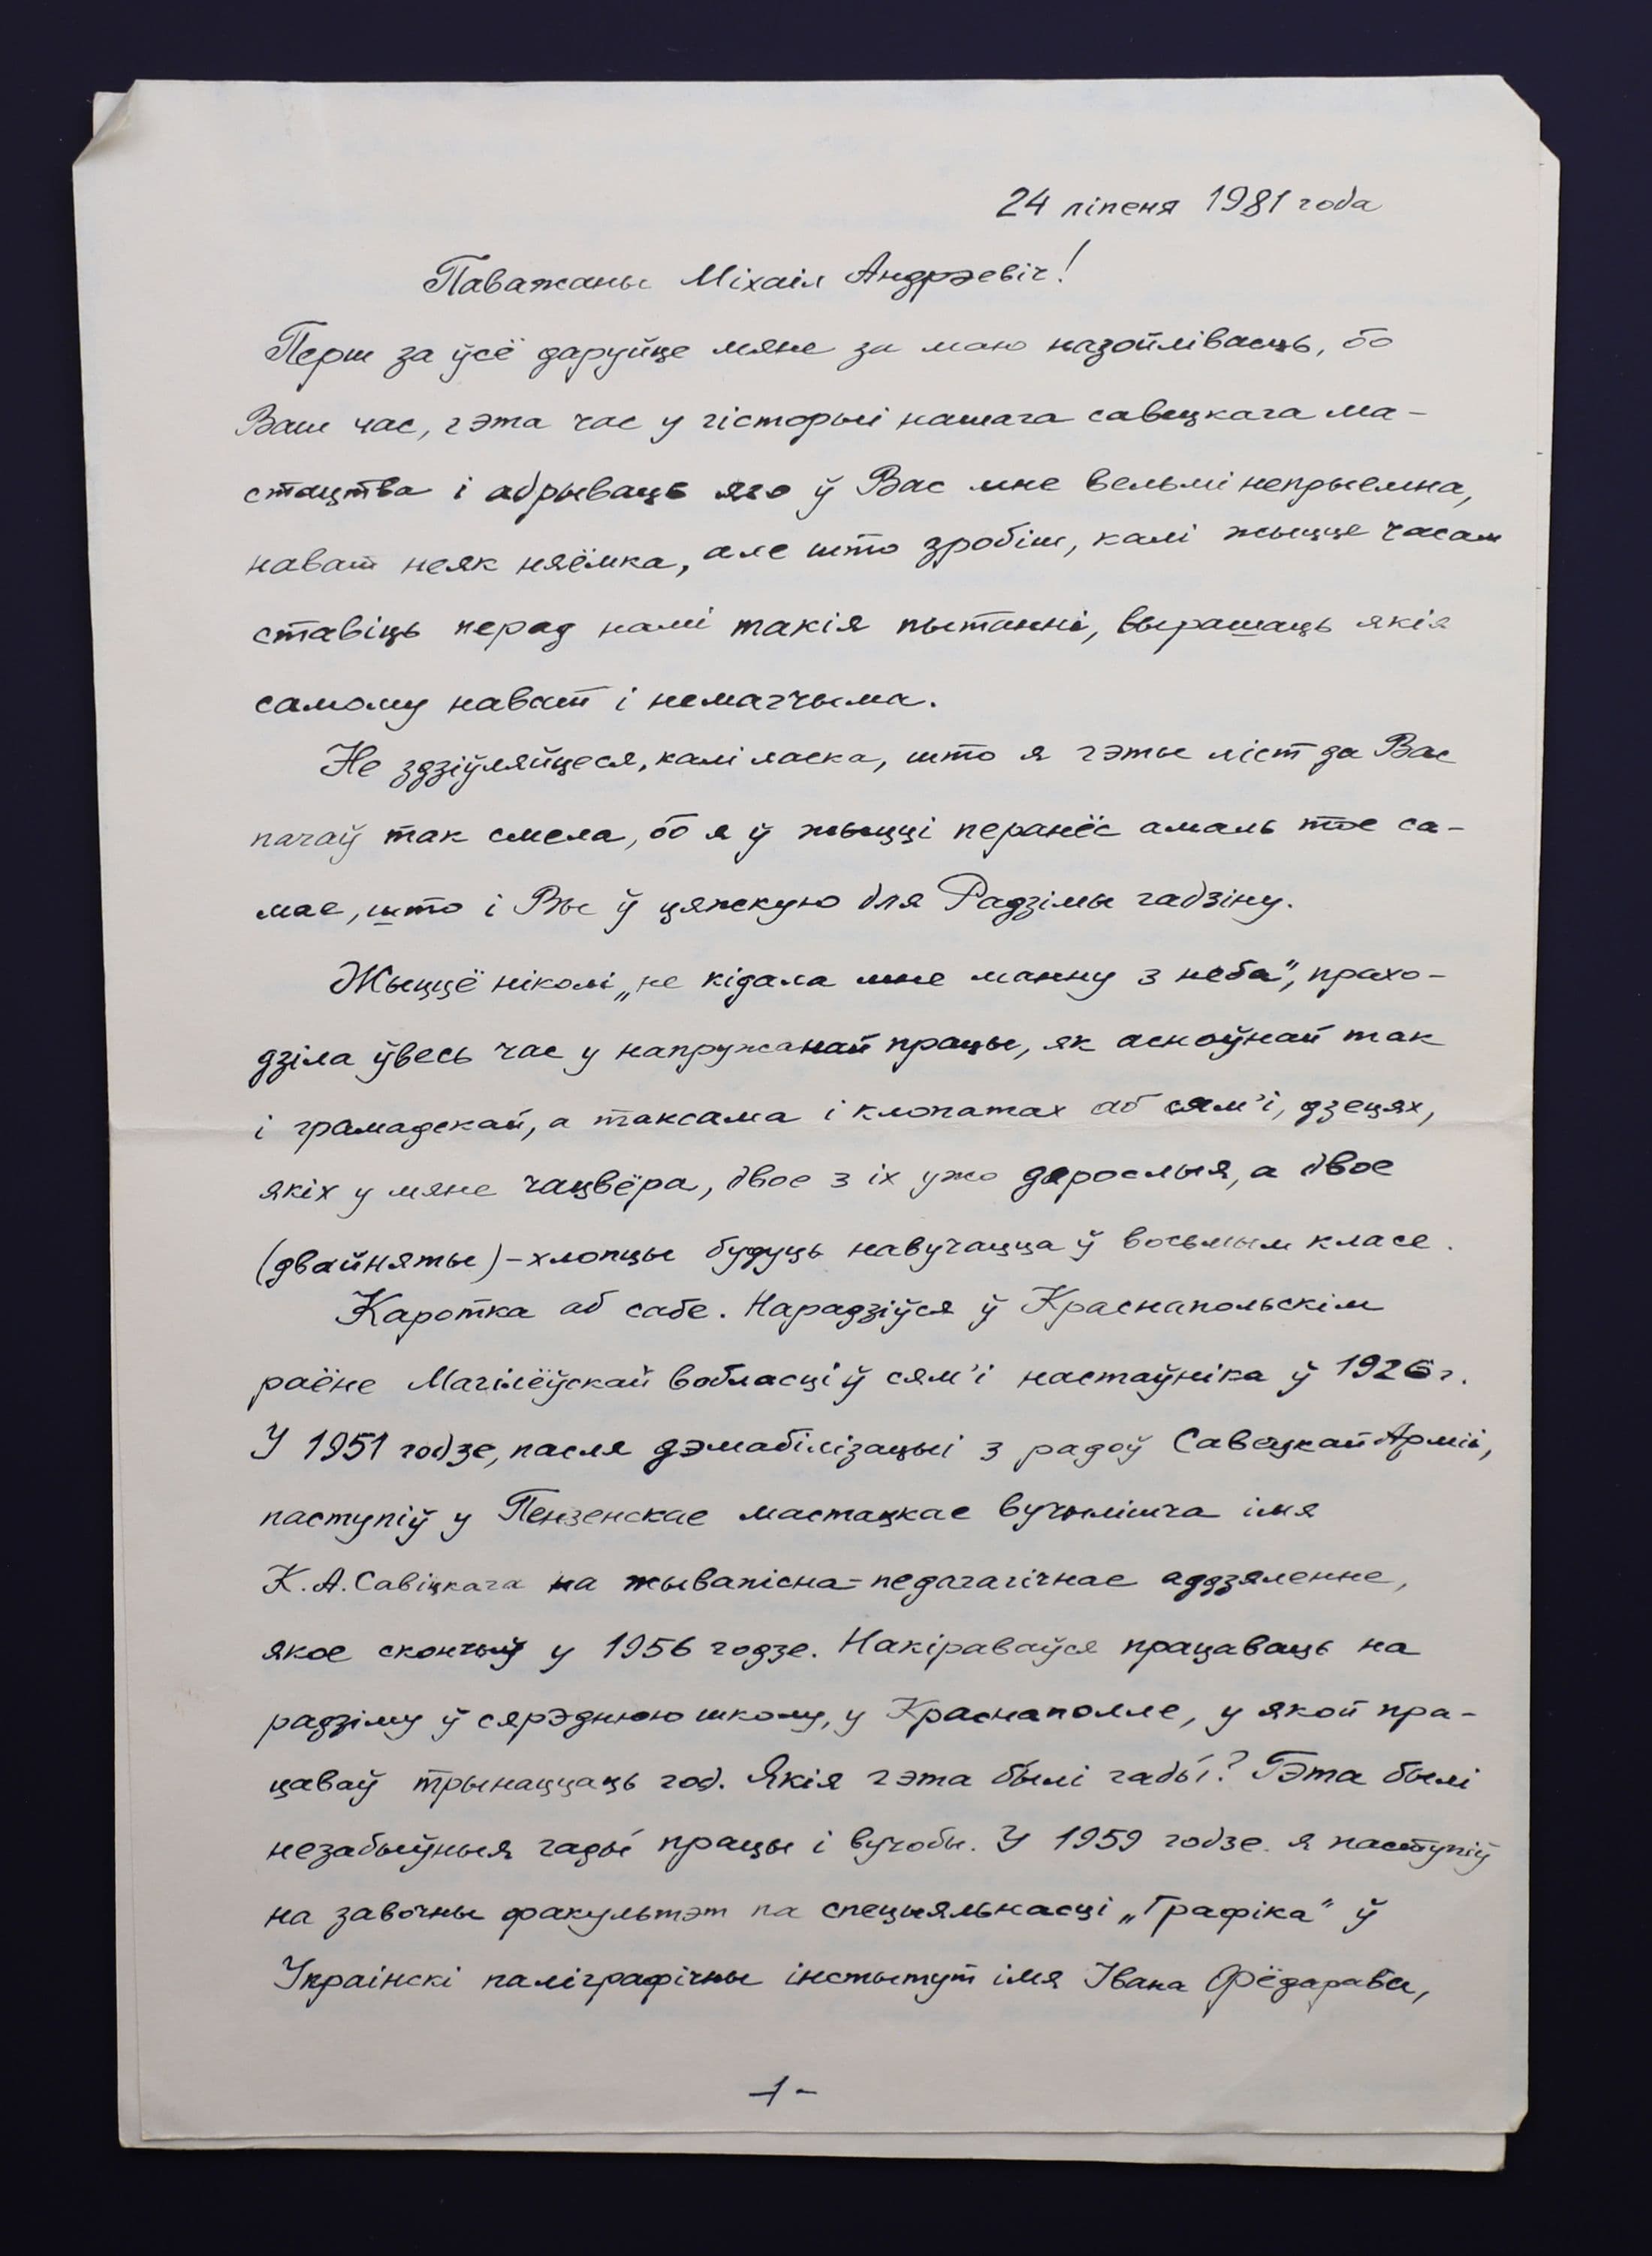 24 ліпеня 1981 года
Паважаны Міхаіл Андрэевіч!
Перш за ўсё даруйце мяне за маю назойлівасць, бо
Ваш час, гэта час у гісторыі нашага савецкага ма-
стацтва і абрываць яго ў Вас мне вельмі непрыемна,
нават неяк няёмка, але што зробіш, калі жыцце часам
ставіць перад намі такія пытанні, вырашаць якія
самому нават і немагчыма.
Не здзіўляйцеся, калі ласка, што я гэты ліст да Вас
пачаў так смела, бо я ў жыцці перанёс амаль тое са-
мае, што і Вы ў цяжкую для Радзімы гадзіну.
Жыццё ніколі „не кідала мне манну з неба", прахо-
дзіла ўвесь час у напружанай працы, як асноўнай так
і грамадскай, а таксама і клопатах аб сям'і, дзецях,
якіх у мяне чацвёра, двое з іх ужо дарослыя, а двое
(двайняты) – хлопцы будуць навучацца ў восьмым класе.
Каротка аб сабе. Нарадзіўся ў Краснапольскім
раёне Магілёўскай вобласці ў сям'і настаўніка ў 1926 г.
У 1951 годзе, пасля дэмабілізацыі з радоў Савецкай Арміі,
паступіў у Пензенскае мастацкае вучылішча імя
К.А. Савіцкага на жывапісна-педагагічнае аддзяленне,
якое скончыў у 1956 годзе. Накіраваўся працаваць на
радзіму ў сярэднюю школу, у Краснаполле, у якой пра-
цаваў трынаццаць год. Якія гэта былі гады́? Гэта былі
незабыўныя гады́ працы і вучобы. У 1959 годзе я паступіў
на завочны факультэт па спецыяльнасці „Графіка" ў
Украінскі паліграфічны інстытут імя Івана Фёдарава,
-1-